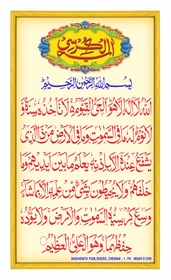 آية الكرسي
بِسْمِ اللهِ الرَّحْمٰنِ الرَّحِيْمِ
اَللهُ لَآ اِلٰهَ اِلَّا هُوَ الْحَيُّ الْقَيُّوْمُ لَا تَأْخُذُهٗ سِنَةٌ وَّ
لَا نَوْمٌ لَهٗ مَا فِي السَّمٰوٰتِ وَمَا فِي الْاَرْضِ مَنْ ذَا الَّذِيْ
يَشْفَعُ عِنْدَهٗٓ اِلَّا بِاِذْنِهٖ يَعْلَمُ مَا بَيْنَ اَيْدِيْهِمْ وَمَا
خَلْفَهُمْ وَلَا يُحِيْطُوْنَ بِشَيْءٍ مِّنْ عِلْمِهٖٓ اِلَّا بِمَا شَآءَ
وَسِعَ كُرْسِيُّهُ السَّمٰوٰتِ وَالْاَرْضَ وَلَا يَئُوْدُهٗ
حِفْظُهُمَا وَهُوَ الْعَلِيُّ الْعَظِيْمُ
PUBLISHERS, CHENNAI - 1. PH :